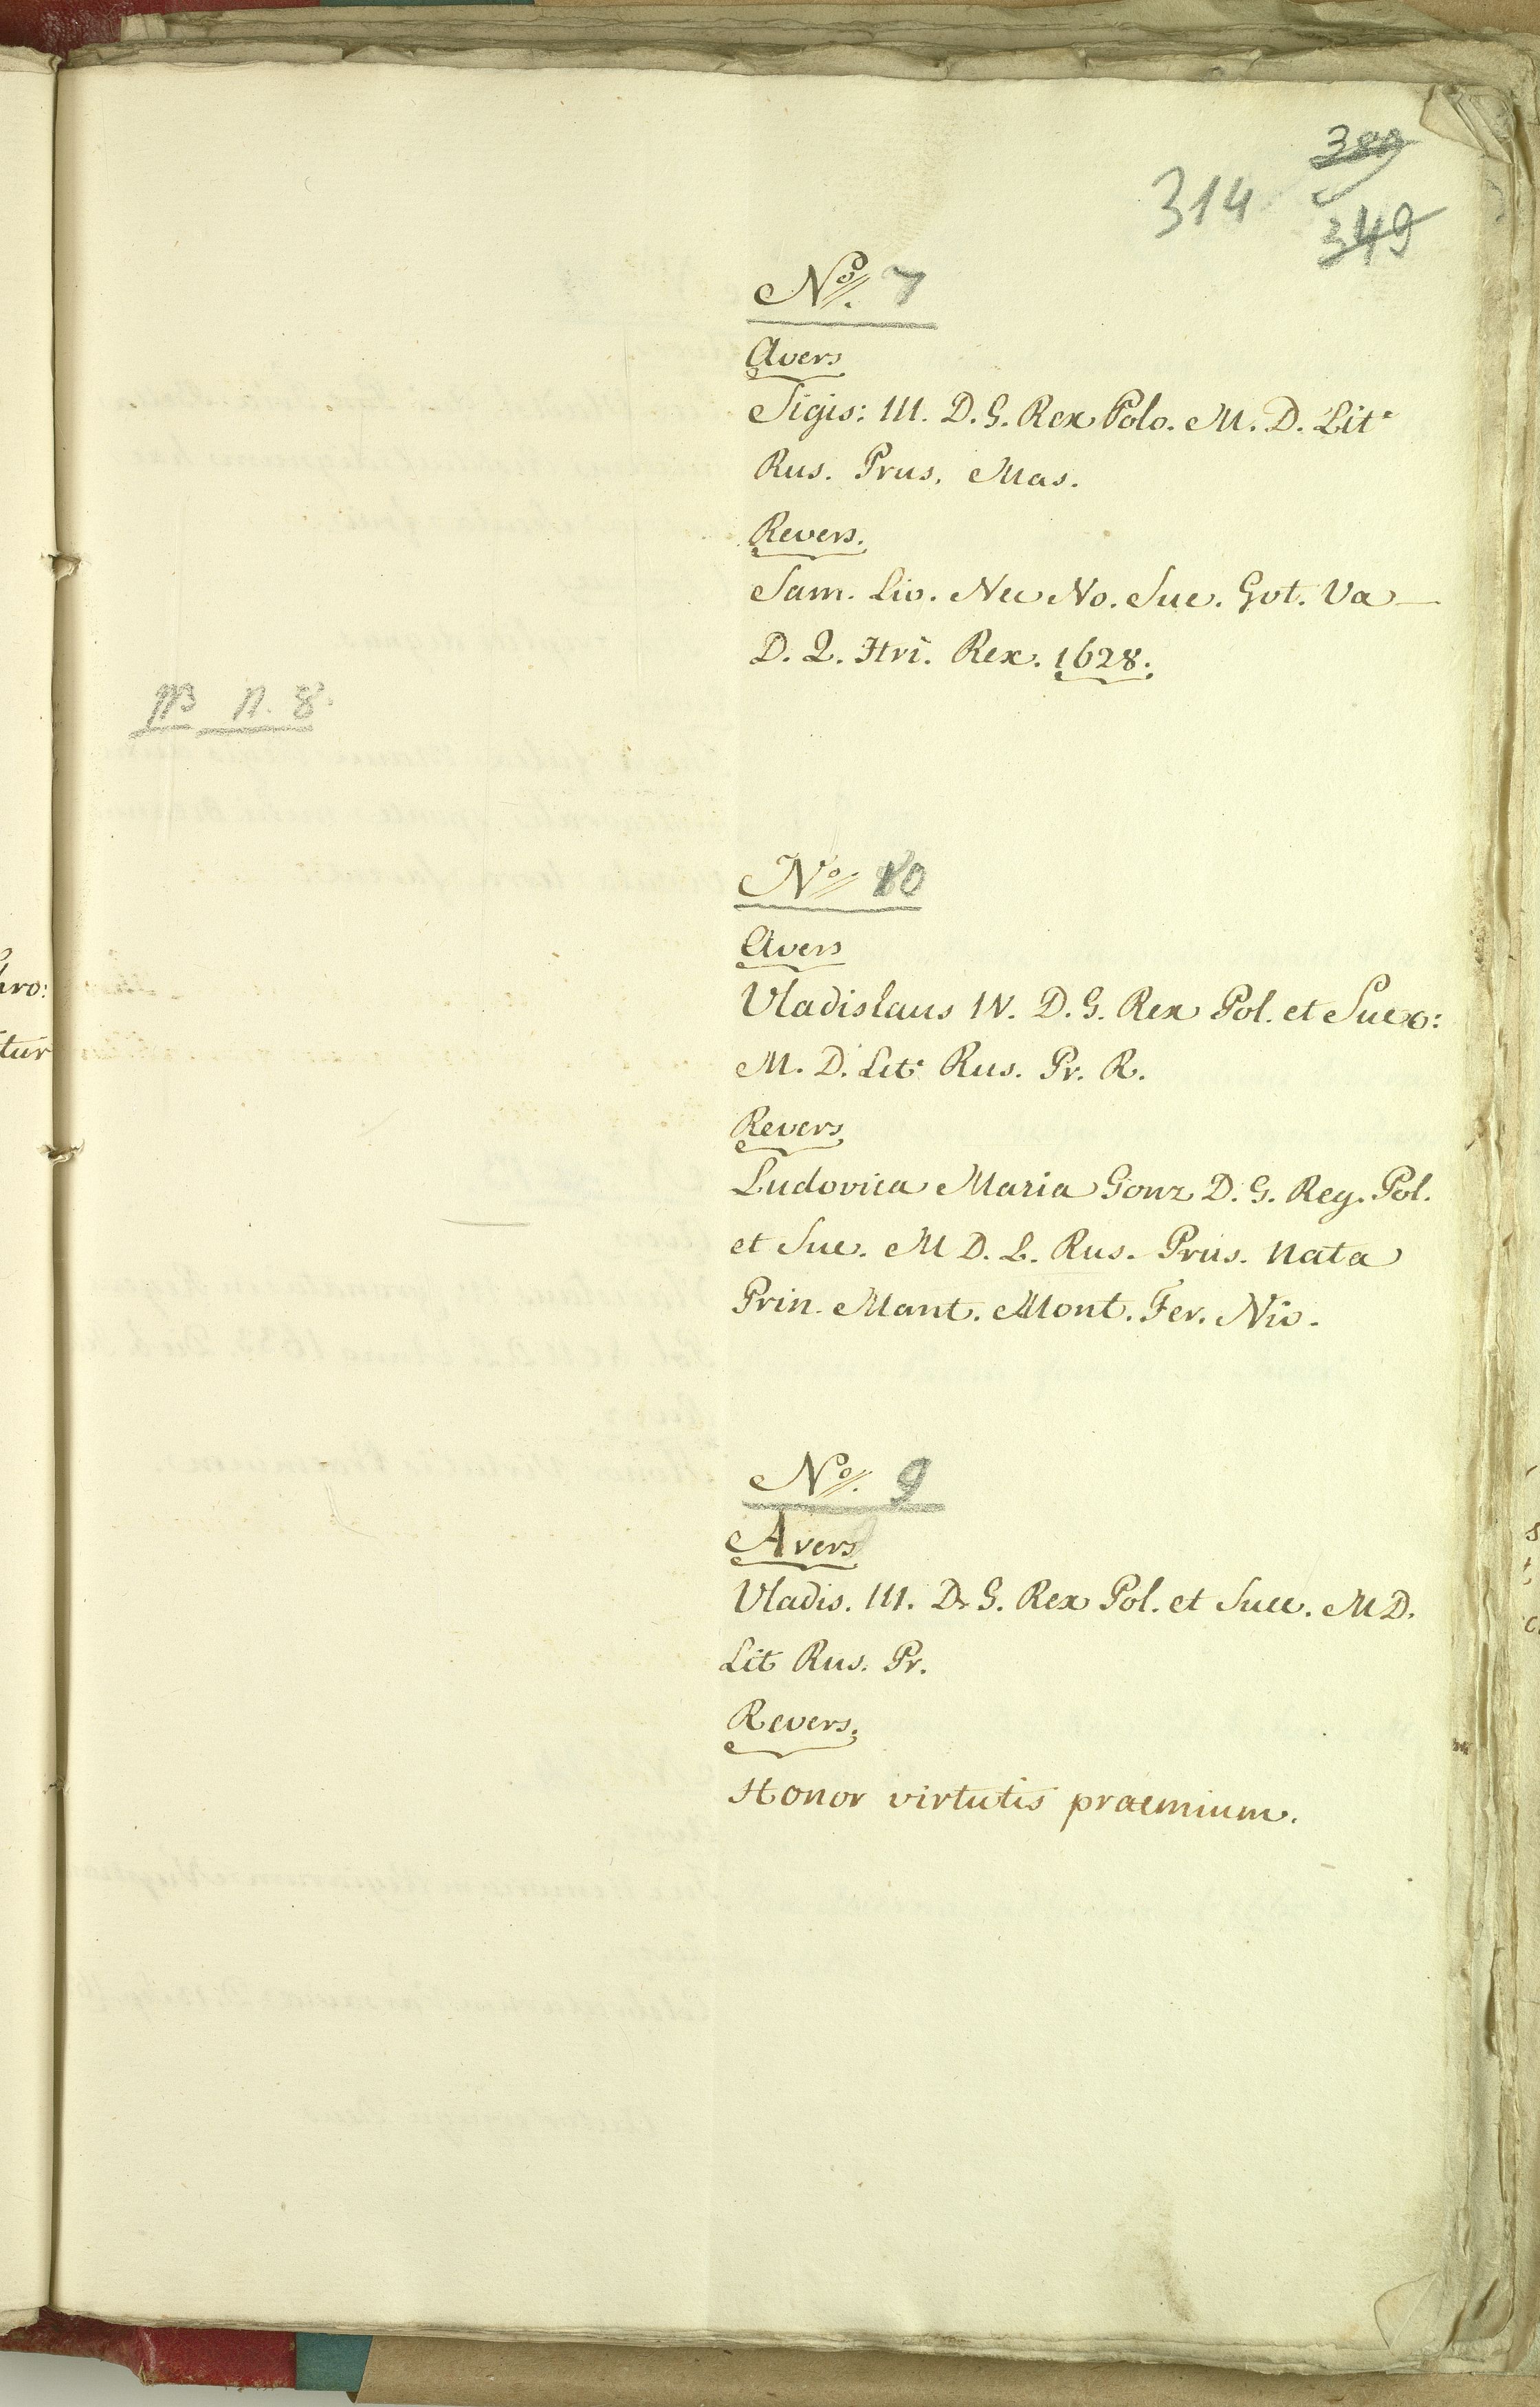 314
349
No. 7
Avers
Sigis: III. D. G. Rex Polo. M. D. Lit.
Rus. Prus. Mas.
Revers.
Sam. Liv. Nec No. Sue. Got. Va
D. Q. Hri. Rex. 1628.
NB n. 8.
No. 10
Avers
Vladislaus IV. D. G. Rex Pol. et Suec:
M. D. Lit. Rus. Pr. R.
Revers
Ludovica Maria Gonz D. G. Reg. Pol.
et Sue. M D. L. Rus. Prus. Nata
Prin. Mant. Mont. Fer. Niv.
No. 9
Avers
Vladis. III. D. G. Rex Pol. et Suec. M D.
Lit Rus. Pr.
Revers.
Honor virtutis praemium.
hro:
tur